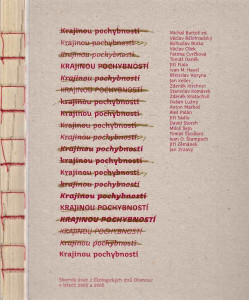 Krajinou pochybností
Krajinou pochybností
Krajinou pochybností
Krajinou pochybností
KRAJINOU POCHYBNOSTÍ
Krajinou pochybností
KRAJINOU POCHYBNOSTÍ
KRAJINOU POCHYBNOSTÍ
Krajinou pochybností
Krajinou pochybností
Krajinou pochybností
Krajinou pochybností
krajinou pochybností
Krajinou pochybností
KRAJINOU POCHYBNOSTÍ
Krajinou pochybností
KRAJINOU POCHYBNOSTÍ
KRAJINOU POCHYBNOSTÍ
Krajinou pochybností
Krajinou pochybností
Michal Bartoš ed.
Václav Bělohradský
Bohuslav Blažek
Václav Cílek
Fatima Cvrčková
Tomáš Daněk
Jiří Fiala
Ivan M. Havel
Miroslav Horyna
Jan Keller
Zdeněk Kirchner
Stanislav Komárek
Zdeněk Kratochvíl
Dušan Lužný
Anton Markoš
Aleš Palán
Jiří Sádlo
David Storch
Miloš Šejn
Ivan O. Štampach
Jiří Zemánek
Jan Zrzavý
Sborník statí z Ekologických dnů Olomouc
v letech